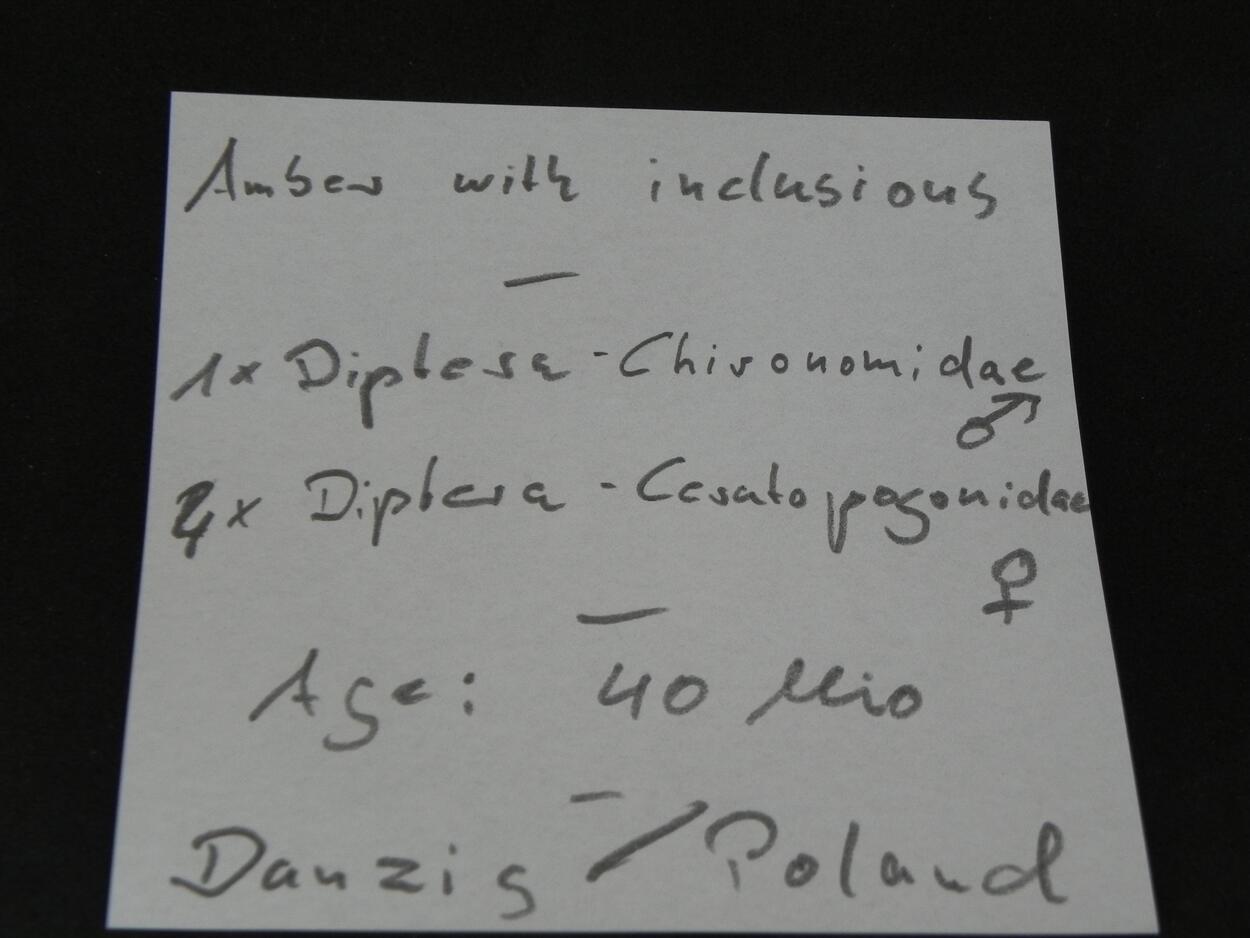 Amber with inclusions
—
1x Diptera - Chironomidae
♂
x Diptera - Ceratopogonidae
♀
—
Age: 40 Mio
—
Danzig / Poland